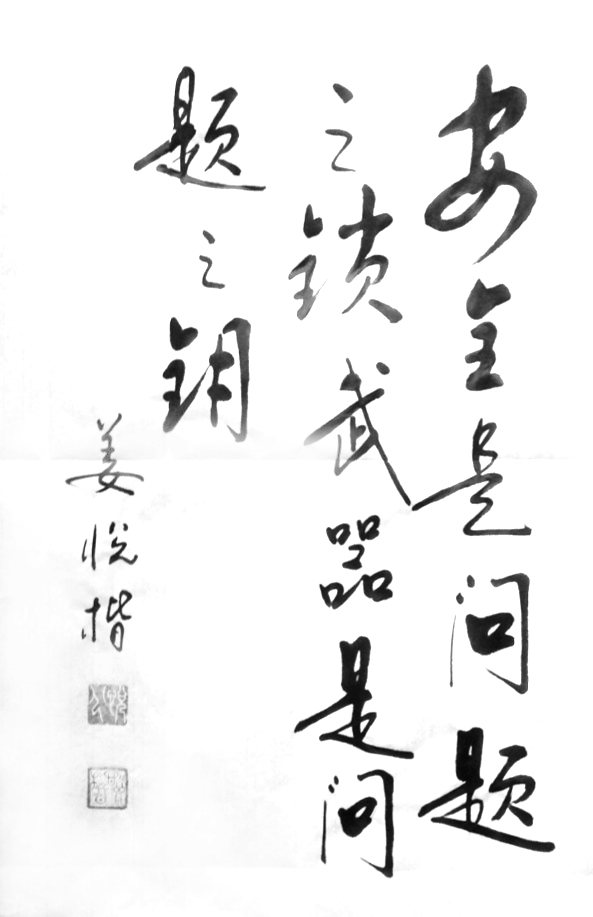 安全是问题
之锁武器是问
题之钥
姜悦楷